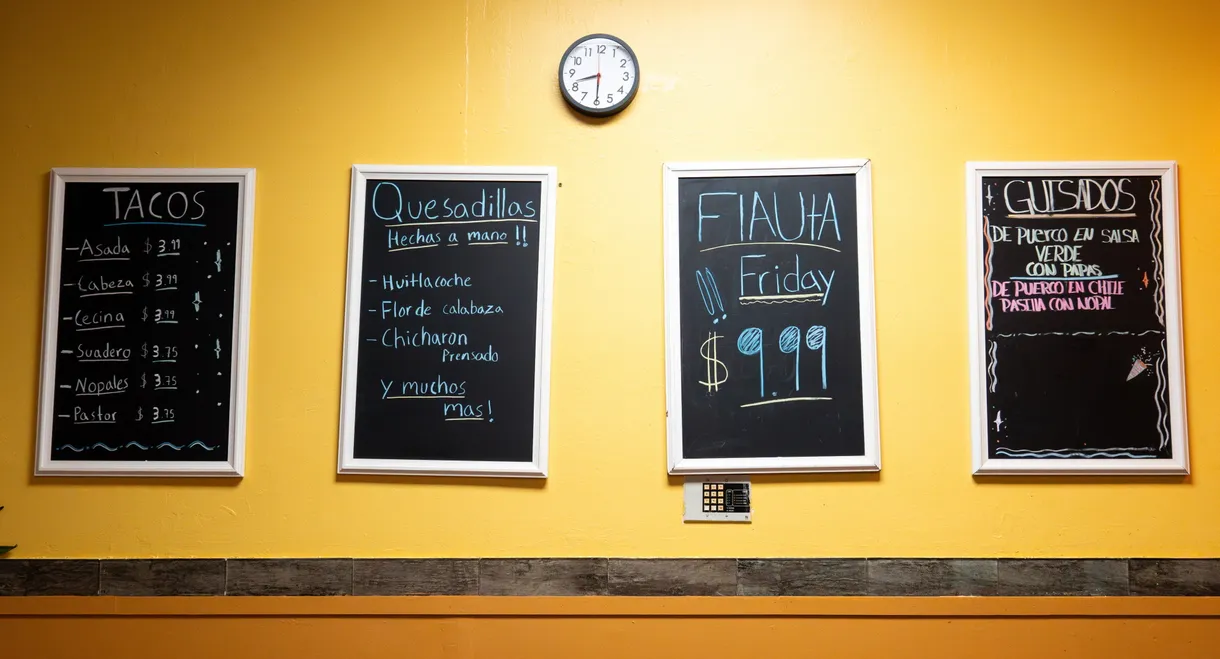 12
11
1
10
2
9
3
8
7
6
5
TACOS
-Asada $ 3.99
-Cabeza $ 3.99
-Cecina $ 3.99
-Suadero $ 3.75
-Nopales $ 3.75
-Pastor $ 3.75
Quesadillas
Hechas a mano !!
- Huitlacoche
- Flor de calabaza
- Chicharon
Prensado
y muchos
mas!
FlAUtA
!! Friday
$ 9.99
GUISADOS
DE PUERCO EN SALSA
VERDE
CON PAPAS
DE PUERCO EN CHILE
PASILLA CON NOPAL